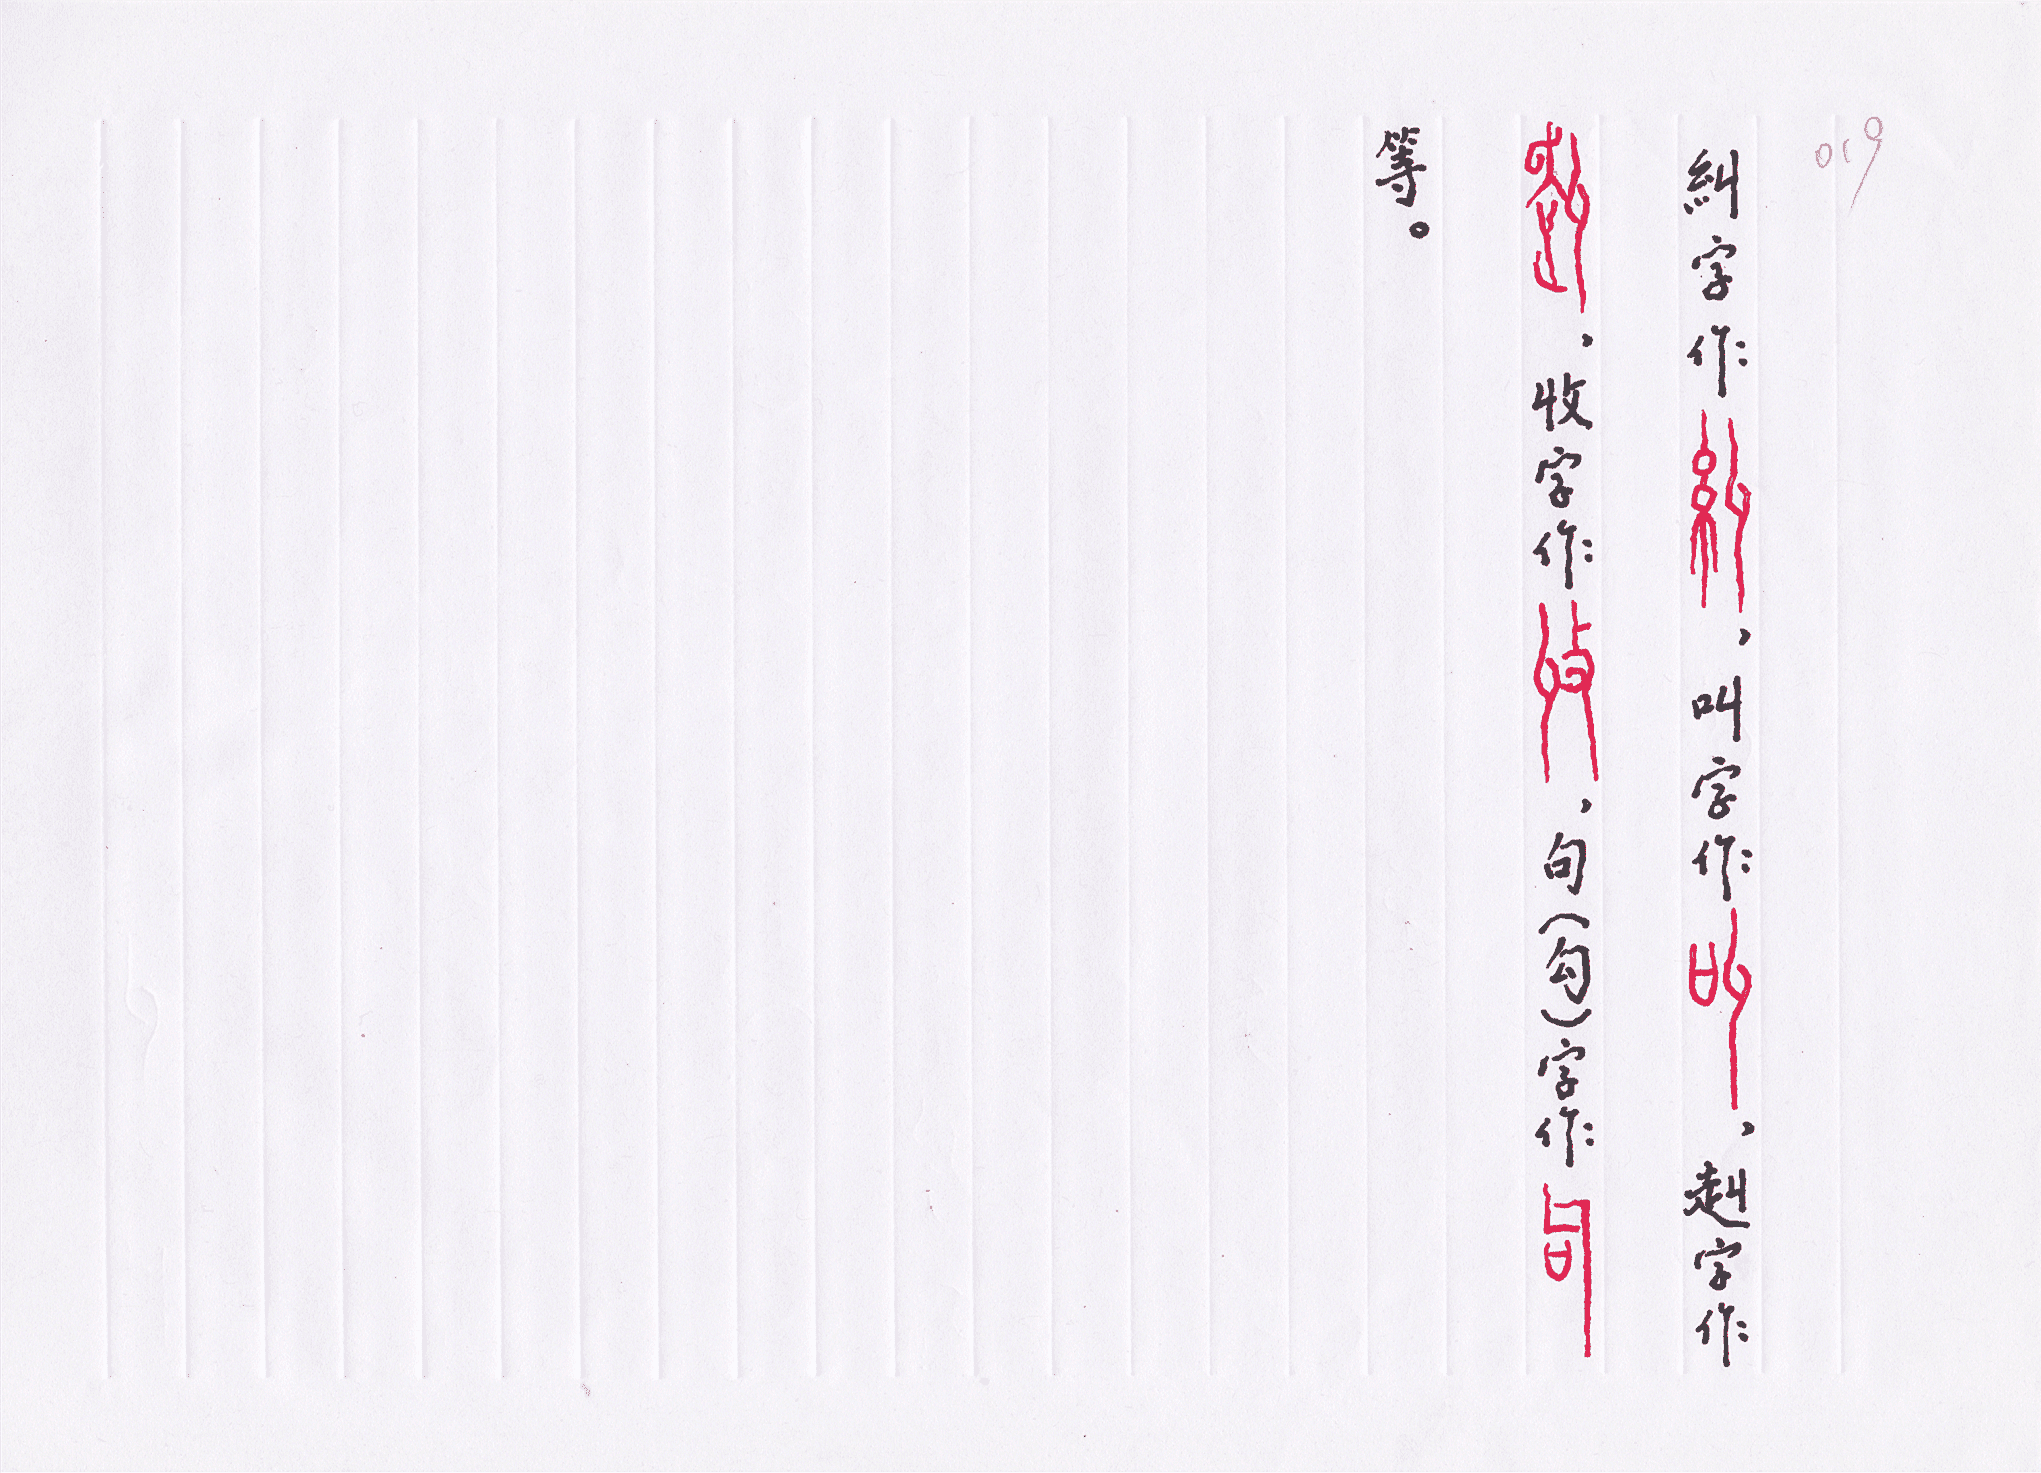 019
糾字作糾，叫字作叫，赳字作
赳，收字作收，句（勾）字作句
等。